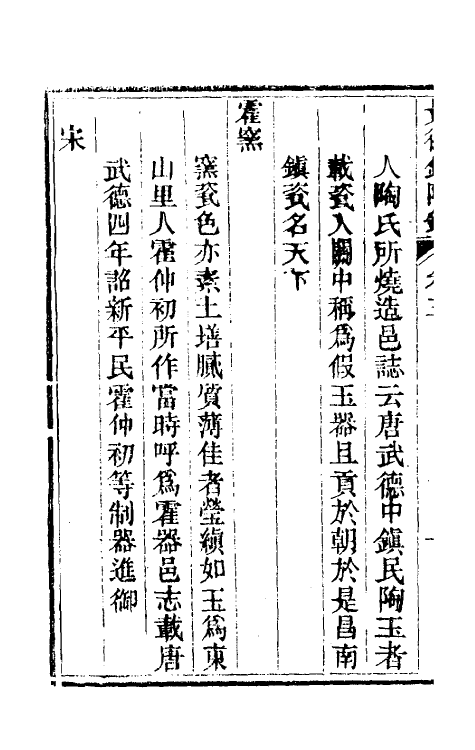 人陶氏所燒造邑誌云唐武德中鎮民陶玉者
載瓷入關中稱爲假玉器且貢於朝於是昌南
鎮瓷名天下
霍窯
窯瓷色亦素土墡膩質薄佳者瑩縝如玉爲東
山里人霍仲初所作當時呼爲霍器邑志載唐
武德四年詔新平民霍仲初等制器進御
宋